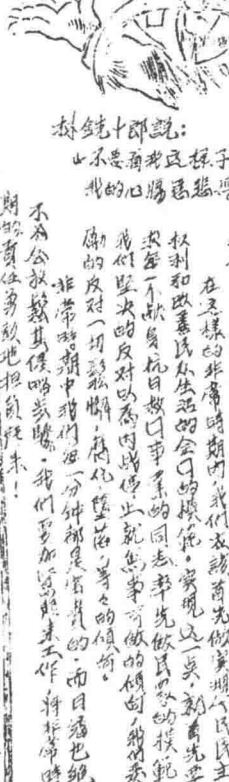 林銑十郎說：
不要看我这樣子
我的心腸
在这樣的非常時期內，我們应該首先做實現人民民主
权利和改善民众生活的全
的模範。實現这一点，就首先要
求每一个献身抗日救囗事業的同志率先做民眾的模範
我們坚决的反对以為内战停止就無事可做的傾向，我們
的反对一切鬆懈，腐化，墮落，等々的傾向。
非常時期中我們每一分钟都是宝貴的，而日寇也絕
不会放鬆其侵略步驟，我們要加緊起來工作，將非常時
期的責任勇敢地担負起来！